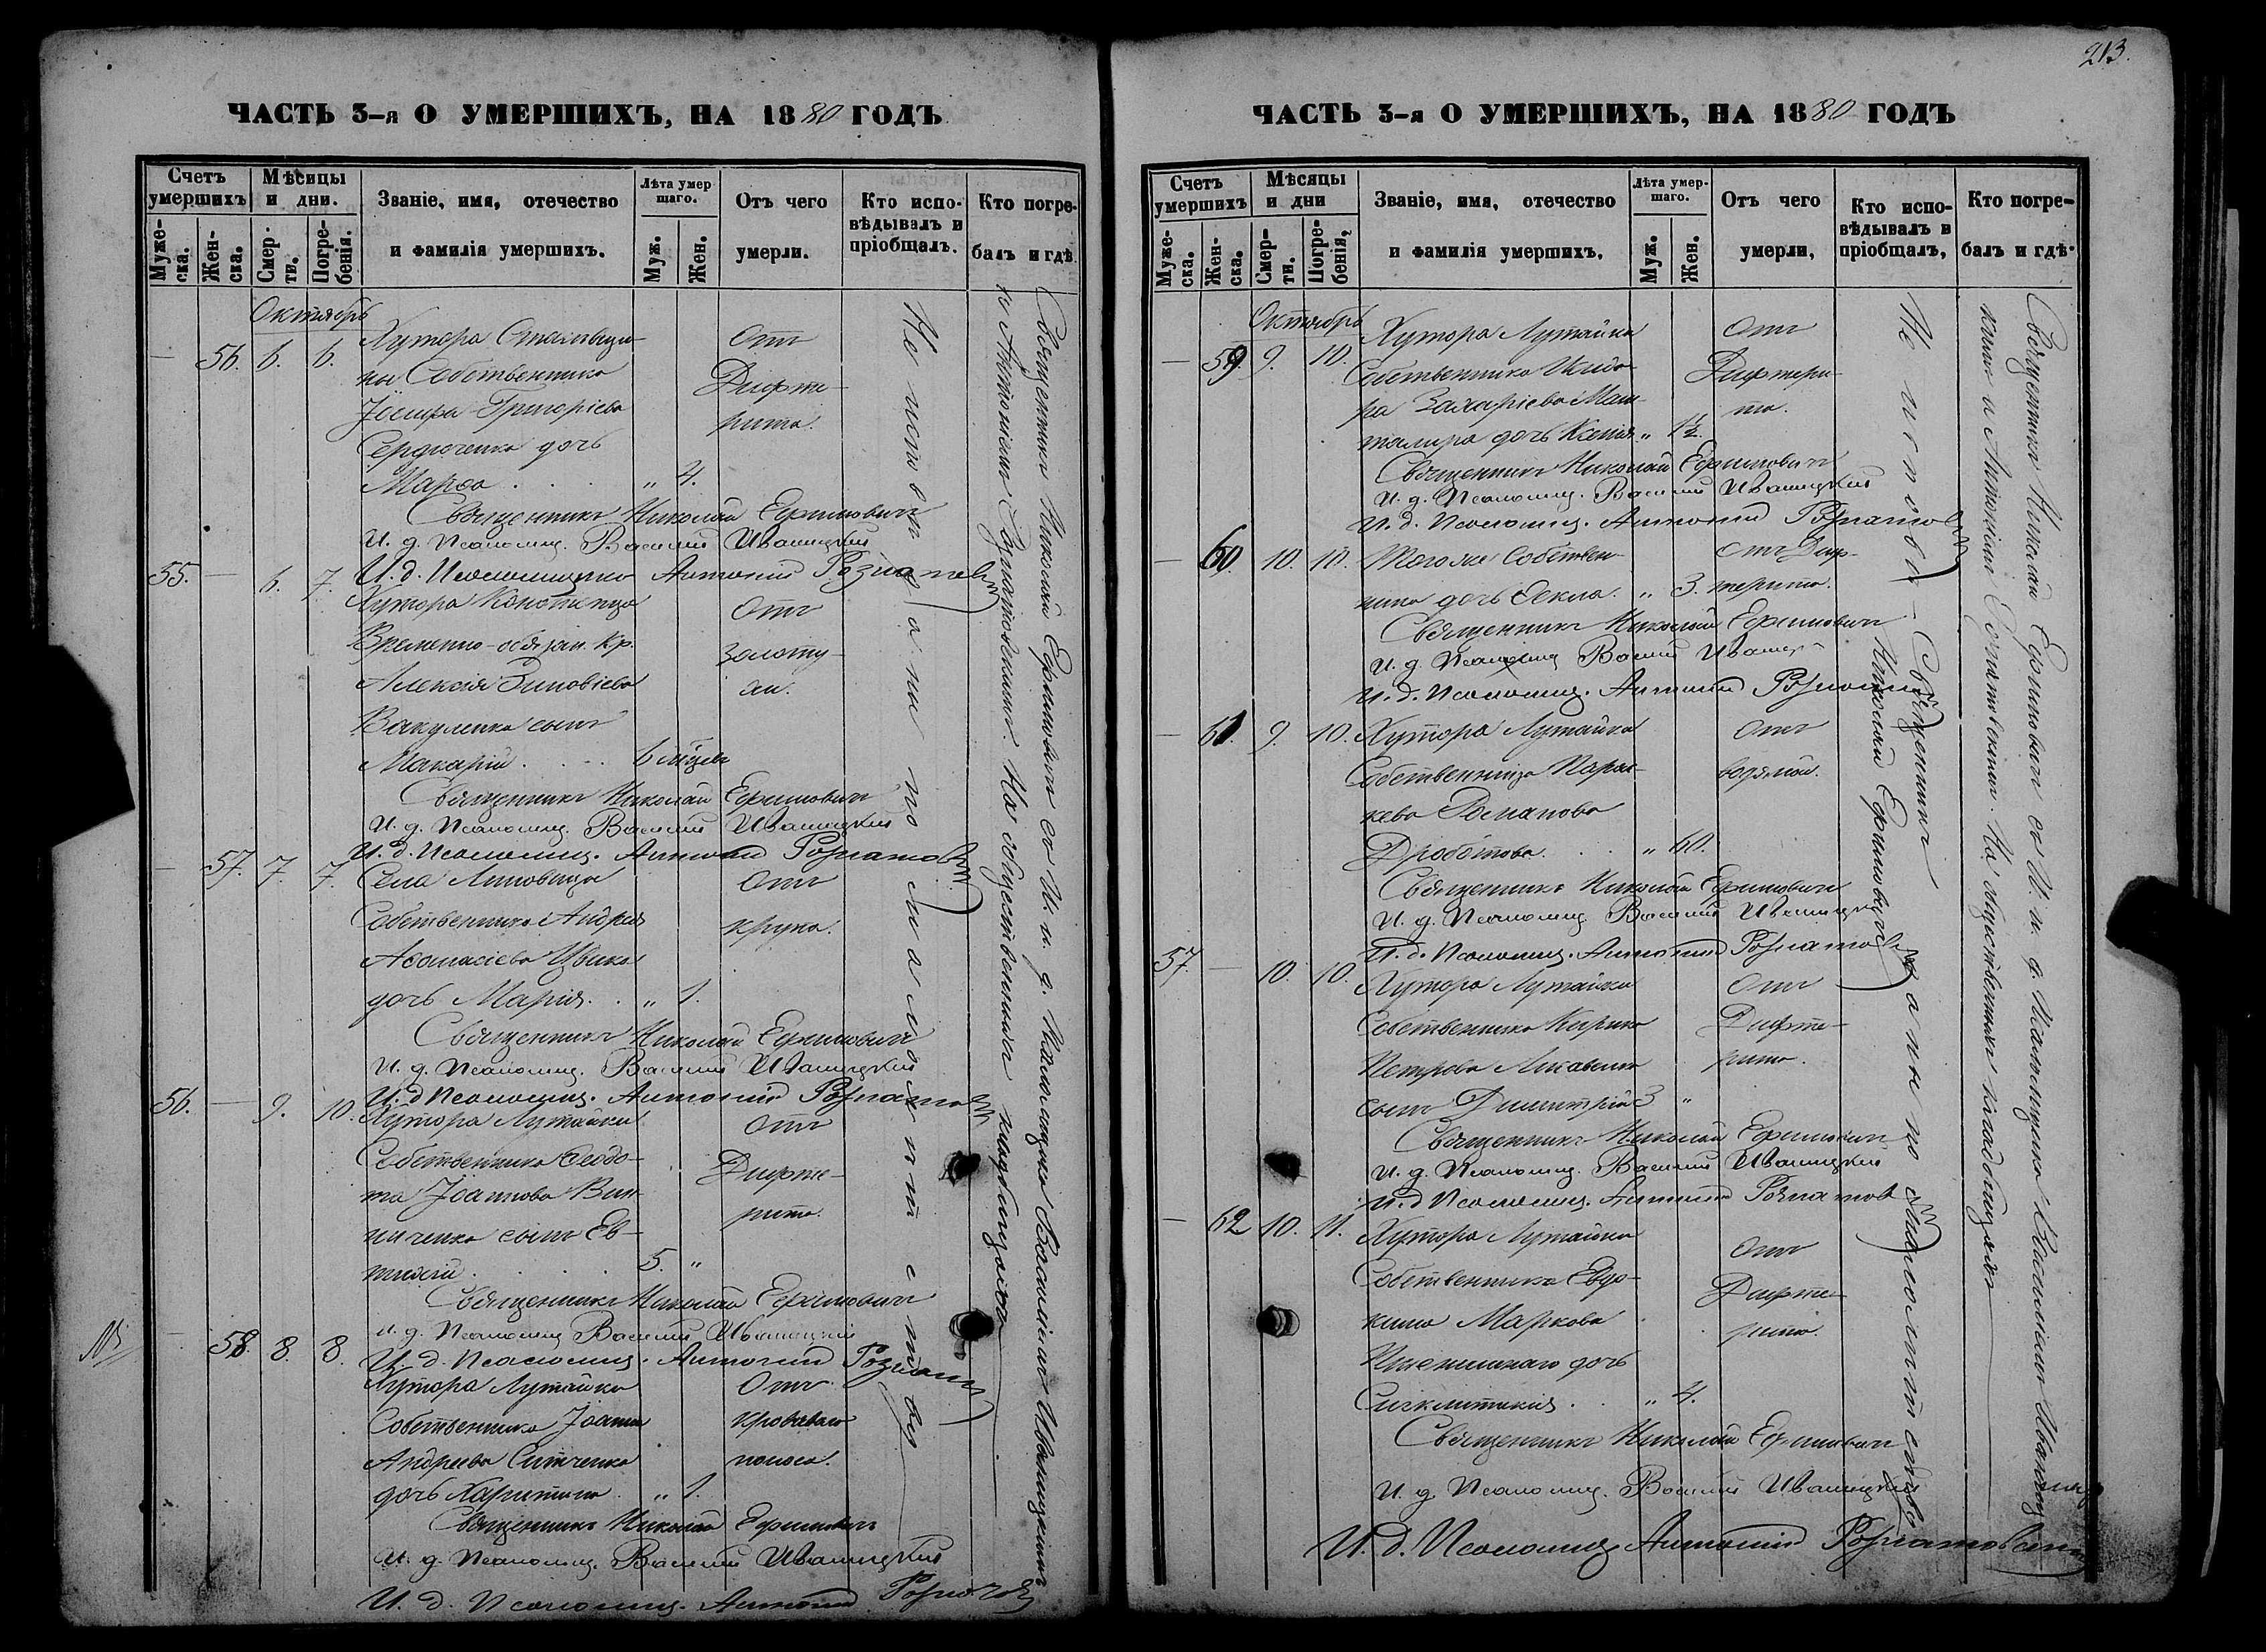 213.
ЧАСТЬ 3-я О УМЕРШИХЪ, НА 1880 ГОДЪ
Счетъ умершихъ
Мѣсяцы и дни.
Званіе, имя, отечество и фамилія умершихъ.
Лѣта умершаго.
Отъ чего умерли.
Кто исповѣдывалъ и пріобщалъ.
Кто погребалъ и гдѣ
Муже-ска.
Жен-ска.
Смер-ти.
Погре-бенія.
Муж.
Жен.
Октябрь
— 56. 6. 6. Хутора
ны Собственника
Іосифа Григоріева
Сердюченка дочь
Марѳа . . . „ 4.
Отъ
Дифте-
рита.
Священникъ Николай Ефимовичъ
И. д. Псаломщ. Василій Иваницкій
И. д. Псаломщика Антоній
55. — 6. 7. Хутора
Временно-обязан. кр.
Алексія Зиновіева
Вакуленка сынъ
Макарій . . . 6 мѣсяц.
Отъ
золоту-
хи.
Священникъ Николай Ефимовичъ
И. д. Псаломщ. Василій Иваницкій
И. д. Псаломщ. Антоній
— 57. 7. 7. Села Линовицы
Собственника Андрея
Аѳанасіева
дочь Марія. . „ 1.
Отъ
крупа.
Священникъ Николай Ефимовичъ
И. д. Псаломщ. Василій Иваницкій
И. д. Псаломщ. Антоній
56. — 9. 10. Хутора Лутайки
Собственника Ѳеодо-
та Іоаннова Вин-
ниченка сынъ Ев-
тихій 5. „
Отъ
Дифте-
рита.
Священникъ Николай Ефимовичъ
И. д. Псаломщ. Василій Иваницкій
И. д. Псаломщ. Антоній
— 58. 8. 8. Хутора Лутайки
Собственника Іоанна
Андреева Ситченка
дочь Харитина „ 1.
Отъ
кроваваго
поноса.
Священникъ Николай Ефимовичъ
И. д. Псаломщ. Василій Иваницкій
И. д. Псаломщ. Антоній
Не исповѣданы по малолѣтству
Священникъ Николай Ефимовичъ съ И. д. Псаломщика Василіемъ Иваницкимъ
и Антоніемъ На общественномъ кладбищѣ
ЧАСТЬ 3-я О УМЕРШИХЪ, НА 1880 ГОДЪ
Счетъ умершихъ
Мѣсяцы и дни
Званіе, имя, отечество и фамилія умершихъ.
Лѣта умер-шаго.
Отъ чего умерли,
Кто испо-вѣдывалъ и пріобщалъ,
Кто погре-балъ и гдѣ.
Муже-ска.
Жен-ска.
Смер-ти.
Погре-бенія,
Муж.
Жен.
Октябрь
— 59. 9. 10. Хутора Лутайки
Собственника Исидо-
ра Захаріева Маш-
талира дочь Ксенія „ 1½.
Отъ
Дифтери-
та.
Священникъ Николай Ефимовичъ
И. д. Псаломщ. Василій Иваницкій
И. д. Псаломщ. Антоній
— 60. 10. 10. Того же Собствен-
ника дочь Ѳекла. „ 3.
Отъ Диф-
терита.
Священникъ Николай Ефимовичъ
И. д. Псаломщ. Василій
И. д. Псаломщ. Антоній
— 61. 9. 10. Хутора Лутайки
Собственница Парас-
кева Романова
Дроботова. . . „ 60.
Отъ
водяной.
Священникъ Николай Ефимовичъ
И. д. Псаломщ. Василій Иваницкій
И. д. Псаломщ. Антоній
57. — 10. 10. Хутора Лутайки
Собственника Кирика
Петрова
сынъ Димитрій 3 „
Отъ
Дифте-
рита.
Священникъ Николай Ефимовичъ
И. д. Псаломщ. Василій Иваницкій
И. д. Псаломщ. Антоній
— 62 10. 11. Хутора Лутайки
Собственника Евдо-
кима Маркова
дочь
Синклитикія . . „ 4.
Отъ
Дифте-
рита.
Священникъ Николай Ефимовичъ
И. д. Псаломщ. Василій Иваницкій
И. д. Псаломщ. Антоній
Не исповѣданы по малолѣтству
Священникъ Николай Ефимовичъ
Священникъ Николай Ефимовичъ съ И. д. Псаломщика Василіемъ
и Антоніемъ На общественномъ кладбищѣ